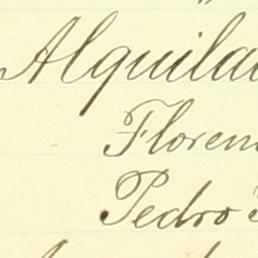 Alquila
Floren
Pedro